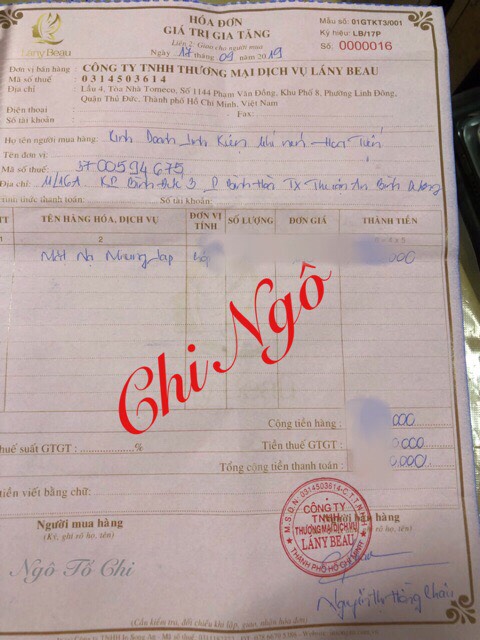 HÓA ĐƠN
GIÁ TRỊ GIA TĂNG
Liên 2: Giao cho người mua
Ngày 17 tháng 09 năm 2019
Mẫu số: 01GTKT3/001
Ký hiệu: LB/17P
Số: 0000016
Lány Beau
Đơn vị bán hàng : CÔNG TY TNHH THƯƠNG MẠI DỊCH VỤ LÁNY BEAU
Mã số thuế : 0314503614
Địa chỉ : Lầu 4, Tòa Nhà Tomeco, Số 1144 Phạm Văn Đồng, Khu Phố 8, Phường Linh Đông,
Quận Thủ Đức, Thành phố Hồ Chí Minh, Việt Nam
Điện thoại : Fax:
Số tài khoản :
Họ tên người mua hàng: Kinh Doanh Linh Kiện khí nén - Hoa Tiến
Tên đơn vị:
Mã số thuế: 3700594675
Địa chỉ: 11/16A KP Bình Đức 3 P Bình Hòa TX Thuận An Bình Dương
thức thanh toán: Số tài khoản:
TT TÊN HÀNG HÓA, DỊCH VỤ ĐƠN VỊ TÍNH SỐ LƯỢNG ĐƠN GIÁ THÀNH TIỀN
1 2
Mặt Nạ Nhung 000
Chi Ngô
Cộng tiền hàng : 000
huế suất GTGT: % Tiền thuế GTGT : 0.000
Tổng cộng tiền thanh toán : 0.000
tiền viết bằng chữ:
Người mua hàng
(Ký, ghi rõ họ, tên)
Người bán hàng
M.S.D.N: 0314503614-C.T.T.N.H.H
CÔNG TY
TNHH
THƯƠNG MẠI DỊCH VỤ
LÁNY BEAU
THÀNH PHỐ HỒ CHÍ MINH
Ngô Tố Chi
Nguyễn Thị Hồng Châu
(Cần kiểm tra, đối chiếu khi lập, giao, nhận hóa đơn)